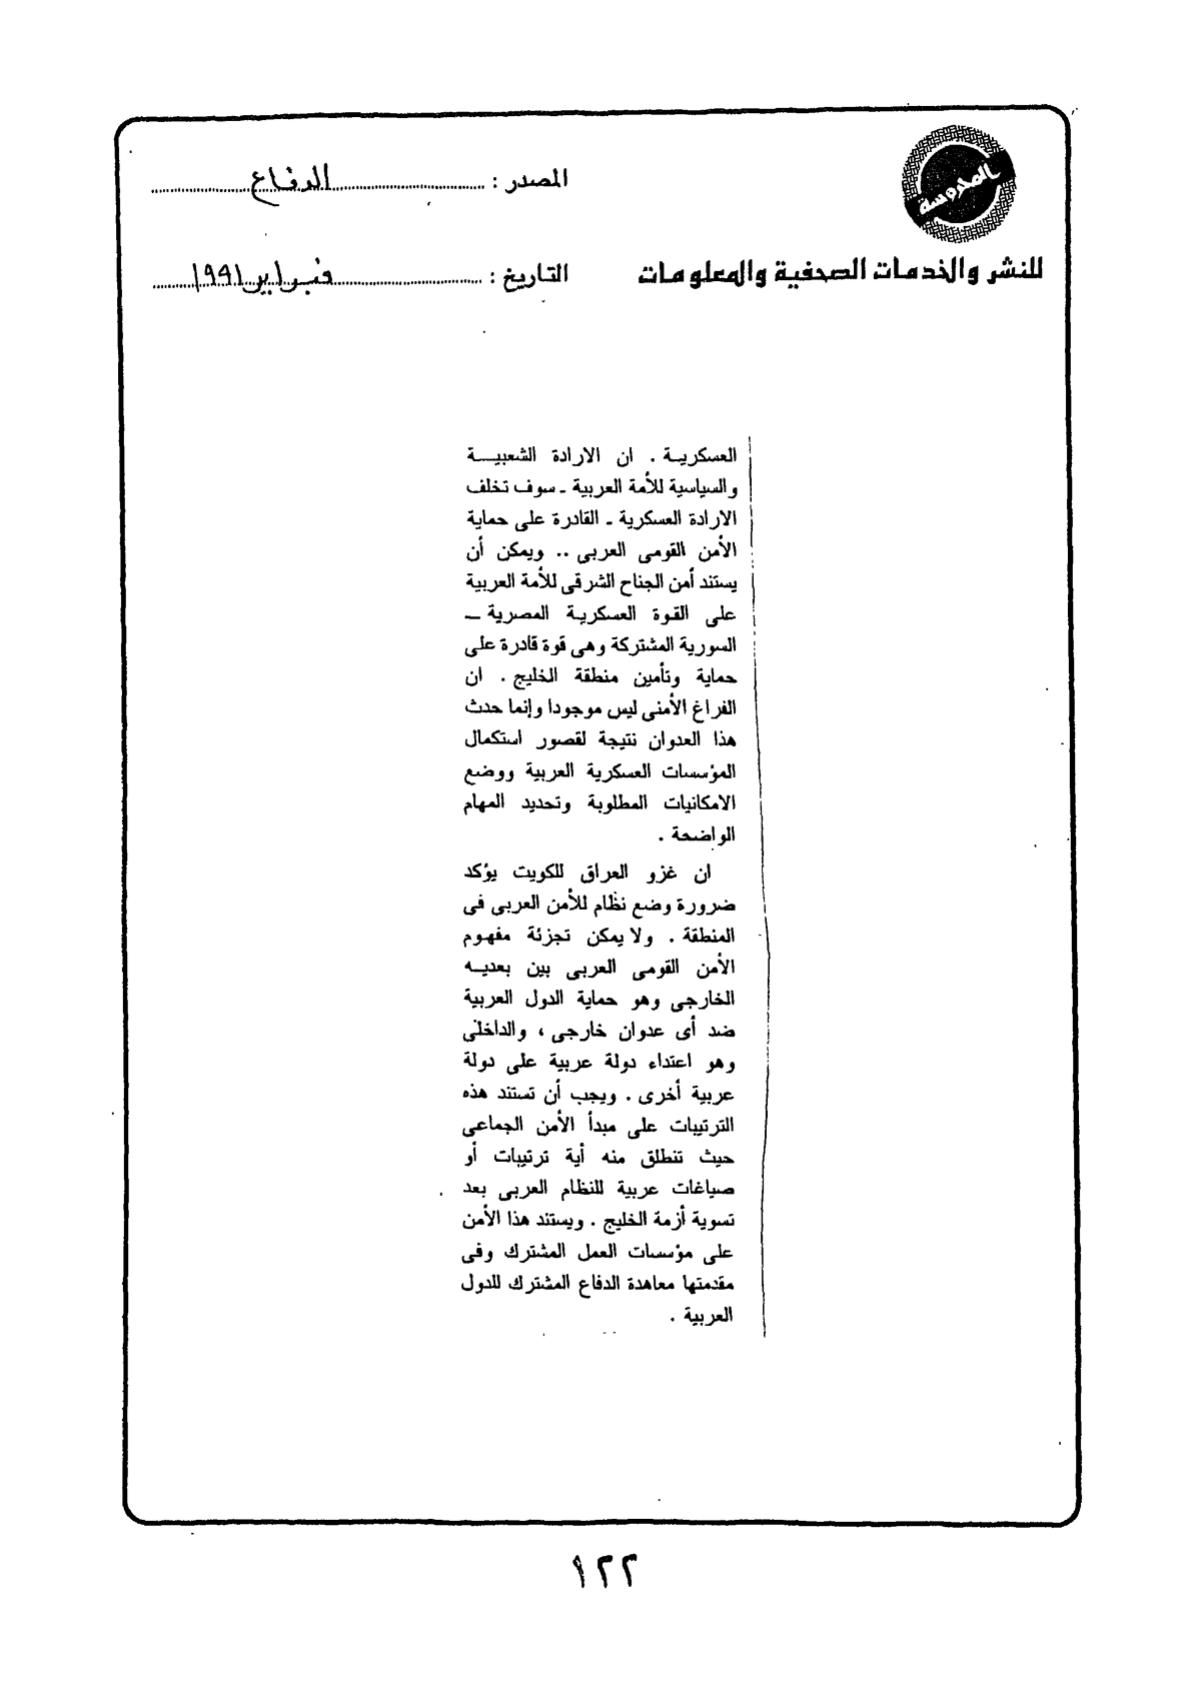 المحروسة
للنشر والخدمات الصحفية والمعلومات
المصدر : الدفاع
التاريخ : فبراير ١٩٩١
العسكرية . ان الارادة الشعبية
والسياسية للأمة العربية ـ سوف تخلف
الارادة العسكرية ـ القادرة على حماية
الأمن القومى العربى .. ويمكن أن
يستند أمن الجناح الشرقى للأمة العربية
على القوة العسكرية المصرية ـ
السورية المشتركة وهى قوة قادرة على
حماية وتأمين منطقة الخليج . ان
الفراغ الأمنى ليس موجودا وإنما حدث
هذا العدوان نتيجة لقصور استكمال
المؤسسات العسكرية العربية ووضع
الامكانيات المطلوبة وتحديد المهام
الواضحة .
ان غزو العراق للكويت يؤكد
ضرورة وضع نظام للأمن العربى فى
المنطقة . ولا يمكن تجزئة مفهوم
الأمن القومى العربى بين بعديه
الخارجى وهو حماية الدول العربية
ضد أى عدوان خارجى ، والداخلى
وهو اعتداء دولة عربية على دولة
عربية أخرى . ويجب أن تستند هذه
الترتيبات على مبدأ الأمن الجماعى
حيث تنطلق منه أية ترتيبات أو
صياغات عربية للنظام العربى بعد
تسوية أزمة الخليج . ويستند هذا الأمن
على مؤسسات العمل المشترك وفى
مقدمتها معاهدة الدفاع المشترك للدول
العربية .
١٢٢